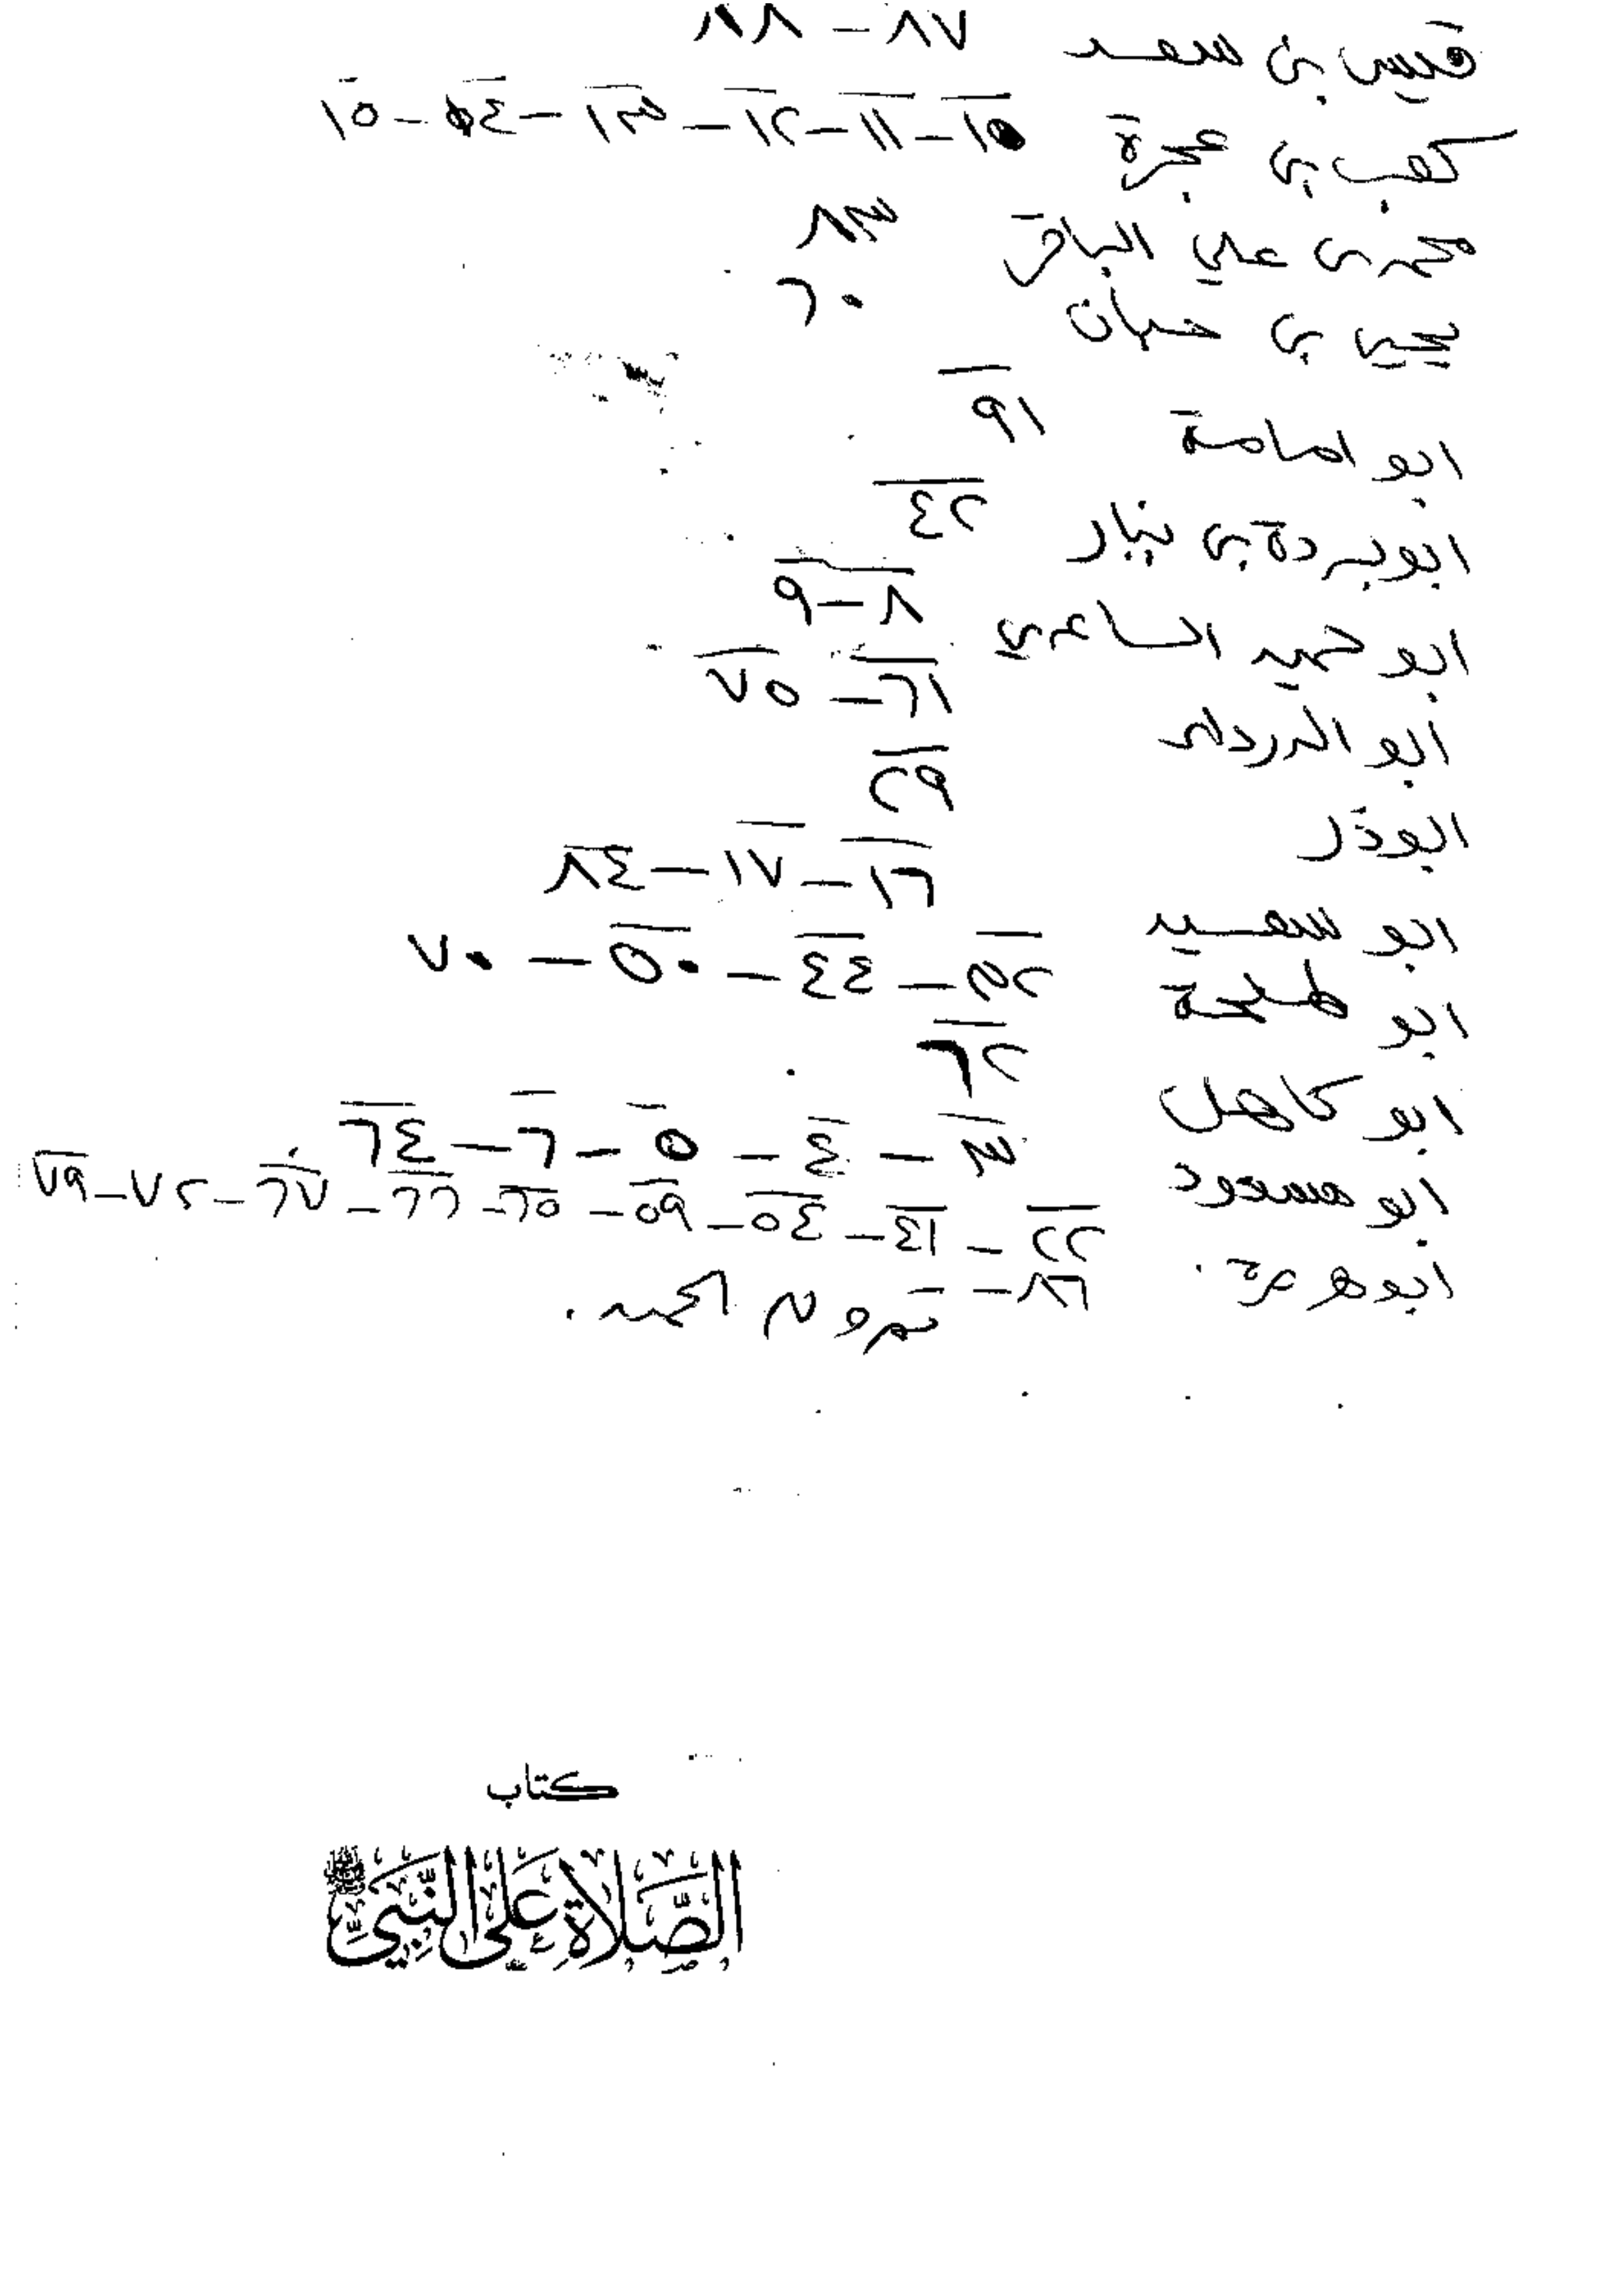 قيس بن سعد ٨٧ - ٨٨
كعب بن عجرة ١٠ - ١١ - ١٢ - ١٣ - ٥٤ - ١٥
محمد بن علي الباقر ٨٣
يحيى بن حبان ٦٠
ابو امامة ٩١
ابو بردة بن نيار ٤٢
ابو حميد الساعدي ٨ - ٩
ابو الدرداء ٦١ - ٧٥
ابو ذر ٢٩
ابو سعيد ١٦ - ١٧ - ٨٤
ابو طلحة ٢ - ٤٤ - ٥٠ - ٧٠
ابو كاهل ٦٢
ابو مسعود ٣ - ٤ - ٥ - ٦ - ٦٤
ابو هريرة ٢٢ - ٤١ - ٥٤ - ٥٩ - ٦٥ - ٦٦ - ٦٧ - ٧٢ - ٧٩
٨٦ -
كتاب
الصَّلَاةِ عَلَى النَّبِيِّ ﷺ